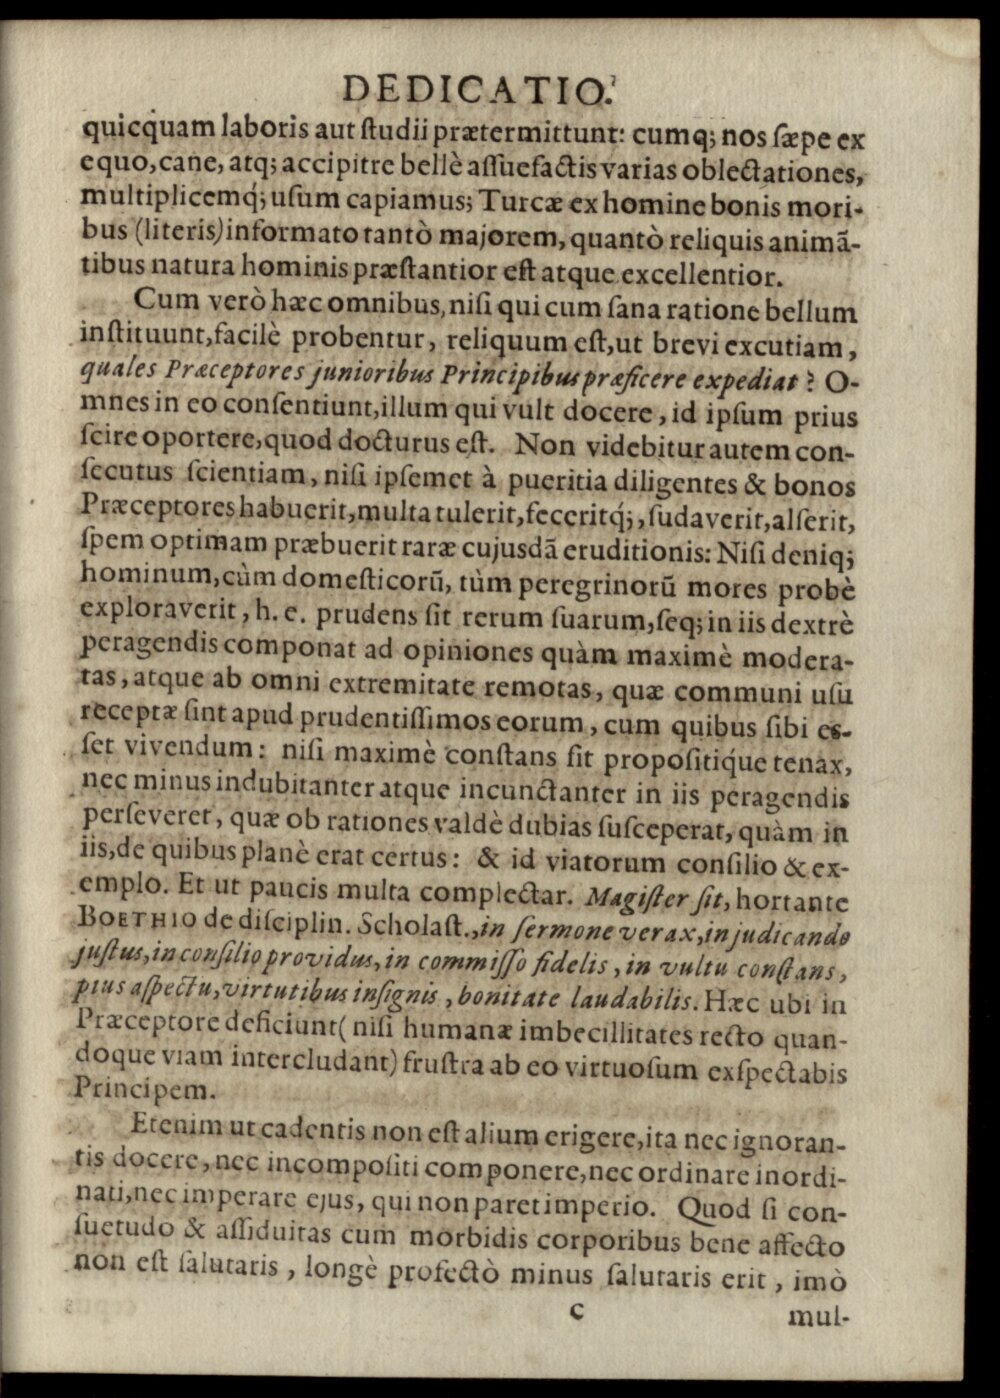 DEDICATIO.
quicquam laboris aut ſtudii prætermittunt: cumq; nos ſæpe ex
equo, cane, atq; accipitre bellè aſſuefactis varias oblectationes,
multiplicemq́; uſum capiamus; Turcæ ex homine bonis mori-
bus (literis) informato tantò majorem, quantò reliquis animã-
tibus natura hominis præſtantior eſt atque excellentior.
Cum verò hæc omnibus, niſi qui cum ſana ratione bellum
inſtituunt, facilè probentur, reliquum eſt, ut brevi excutiam,
quales Præceptores junioribus Principibus præficere expediat? O-
mnes in eo conſentiunt, illum qui vult docere, id ipſum prius
ſcire oportere, quod docturus eſt. Non videbitur autem con-
ſecutus ſcientiam, niſi ipſemet à pueritia diligentes & bonos
Præceptores habuerit, multa tulerit, feceritq́;, ſudaverit, alſerit,
ſpem optimam præbuerit raræ cujusdã eruditionis: Niſi deniq;
hominum, cùm domeſticorũ, tùm peregrinorũ mores probè
exploraverit, h. e. prudens ſit rerum ſuarum, ſeq; in iis dextrè
peragendis componat ad opiniones quàm maximè modera-
tas, atque ab omni extremitate remotas, quæ communi uſu
receptæ ſint apud prudentiſſimos eorum, cum quibus ſibi es-
ſet vivendum: niſi maximè conſtans ſit propoſitiq́ue tenax,
nec minus indubitanter atque incunctanter in iis peragendis
perſeveret, quæ ob rationes valdè dubias ſuſceperat, quàm in
iis, de quibus planè erat certus: & id viatorum conſilio & ex-
emplo. Et ut paucis multa complectar. Magiſter ſit, hortante
BOETHIO de diſciplin. Scholaſt., in ſermone verax, in judicando
juſtus, in conſilio providus, in commiſſo fidelis, in vultu conſtans,
pius aſpectu, virtutibus inſignis, bonitate laudabilis. Hæc ubi in
Præceptore deficiunt (niſi humanæ imbecillitates recto quan-
doque viam intercludant) fruſtra ab eo virtuoſum exſpectabis
Principem.
Etenim ut cadentis non eſt alium erigere, ita nec ignoran-
tis docere, nec incompoſiti componere, nec ordinare inordi-
nati, nec imperare ejus, qui non paret imperio. Quod ſi con-
ſuetudo & aſſiduitas cum morbidis corporibus bene affecto
non eſt ſalutaris, longè profectò minus ſalutaris erit, imò
c
mul-